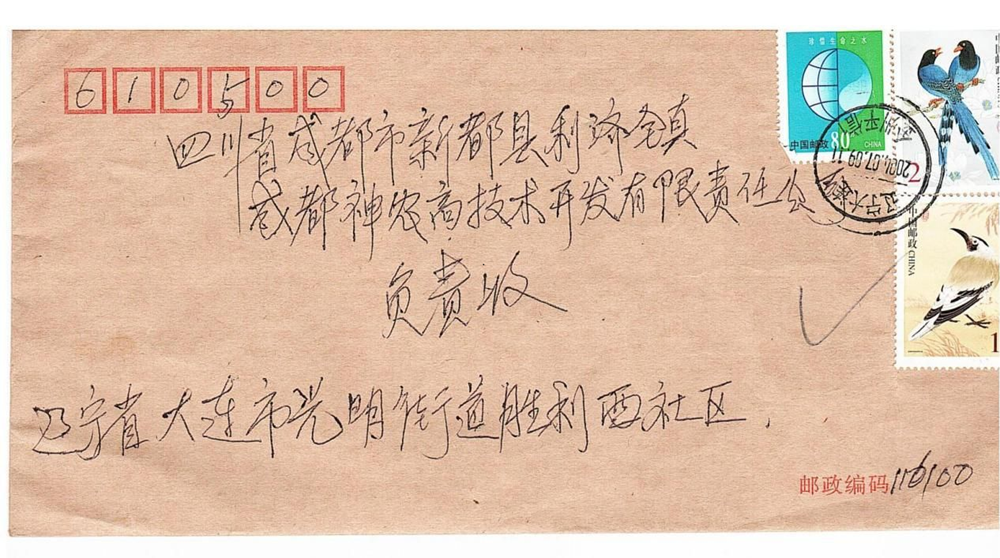 610500
四川省成都市新都县利济全真
成都神农高技术开发有限责任公
负责收
辽宁省大连市光明街道胜利西社区.
邮政编码116100
珍惜生命之水
中国邮政 80 CHINA
中国邮政 CHINA
2
中国邮政 CHINA
1
2004.07.09.11